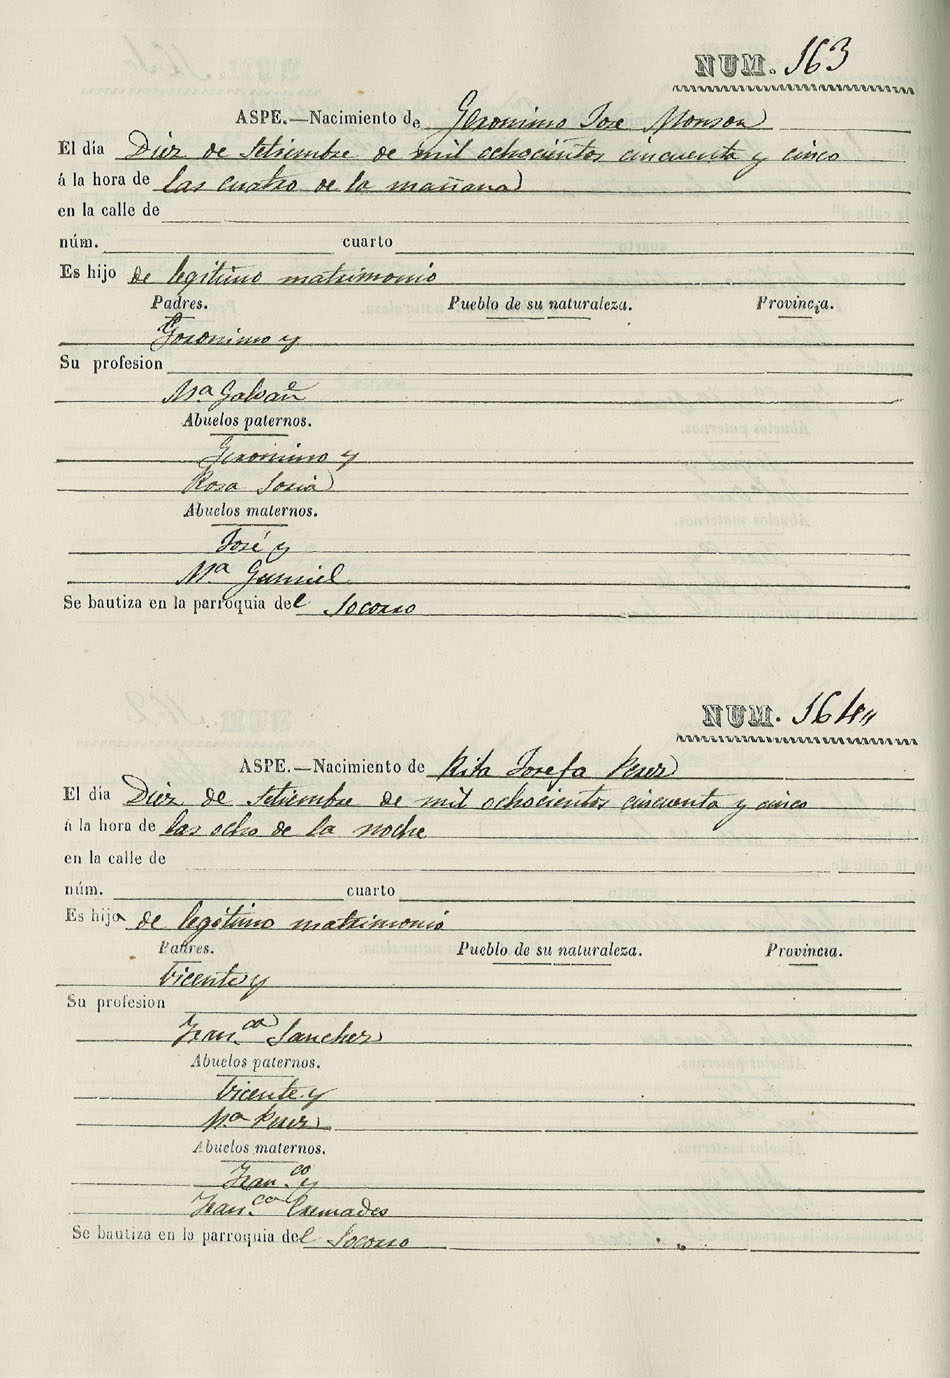 NUM. 163
ASPE.—Nacimiento de Geronimo Jose Monzon
El día Diez de Setiembre de mil ochocientos cincuenta y cinco
á la hora de las cuatro de la mañana
en la calle de
núm. cuarto
Es hijo de legitimo matrimonio
Padres. Pueblo de su naturaleza. Provincia.
Geronimo y
Su profesion
Mª Galvañ
Abuelos paternos.
Geronimo y
Rosa Soria
Abuelos maternos.
José y
Mª Gumiel
Se bautiza en la parroquia del Socorro
NUM. 164
ASPE.—Nacimiento de Rita Josefa Perez
El día Diez de Setiembre de mil ochocientos cincuenta y cinco
á la hora de las ocho de la noche
en la calle de
núm. cuarto
Es hija de legitimo matrimonio
Padres. Pueblo de su naturaleza. Provincia.
Vicente y
Su profesion
Fran.ca Sanchez
Abuelos paternos.
Vicente y
Mª Perez
Abuelos maternos.
Fran.co y
Fran.ca Cremades
Se bautiza en la parroquia del Socorro